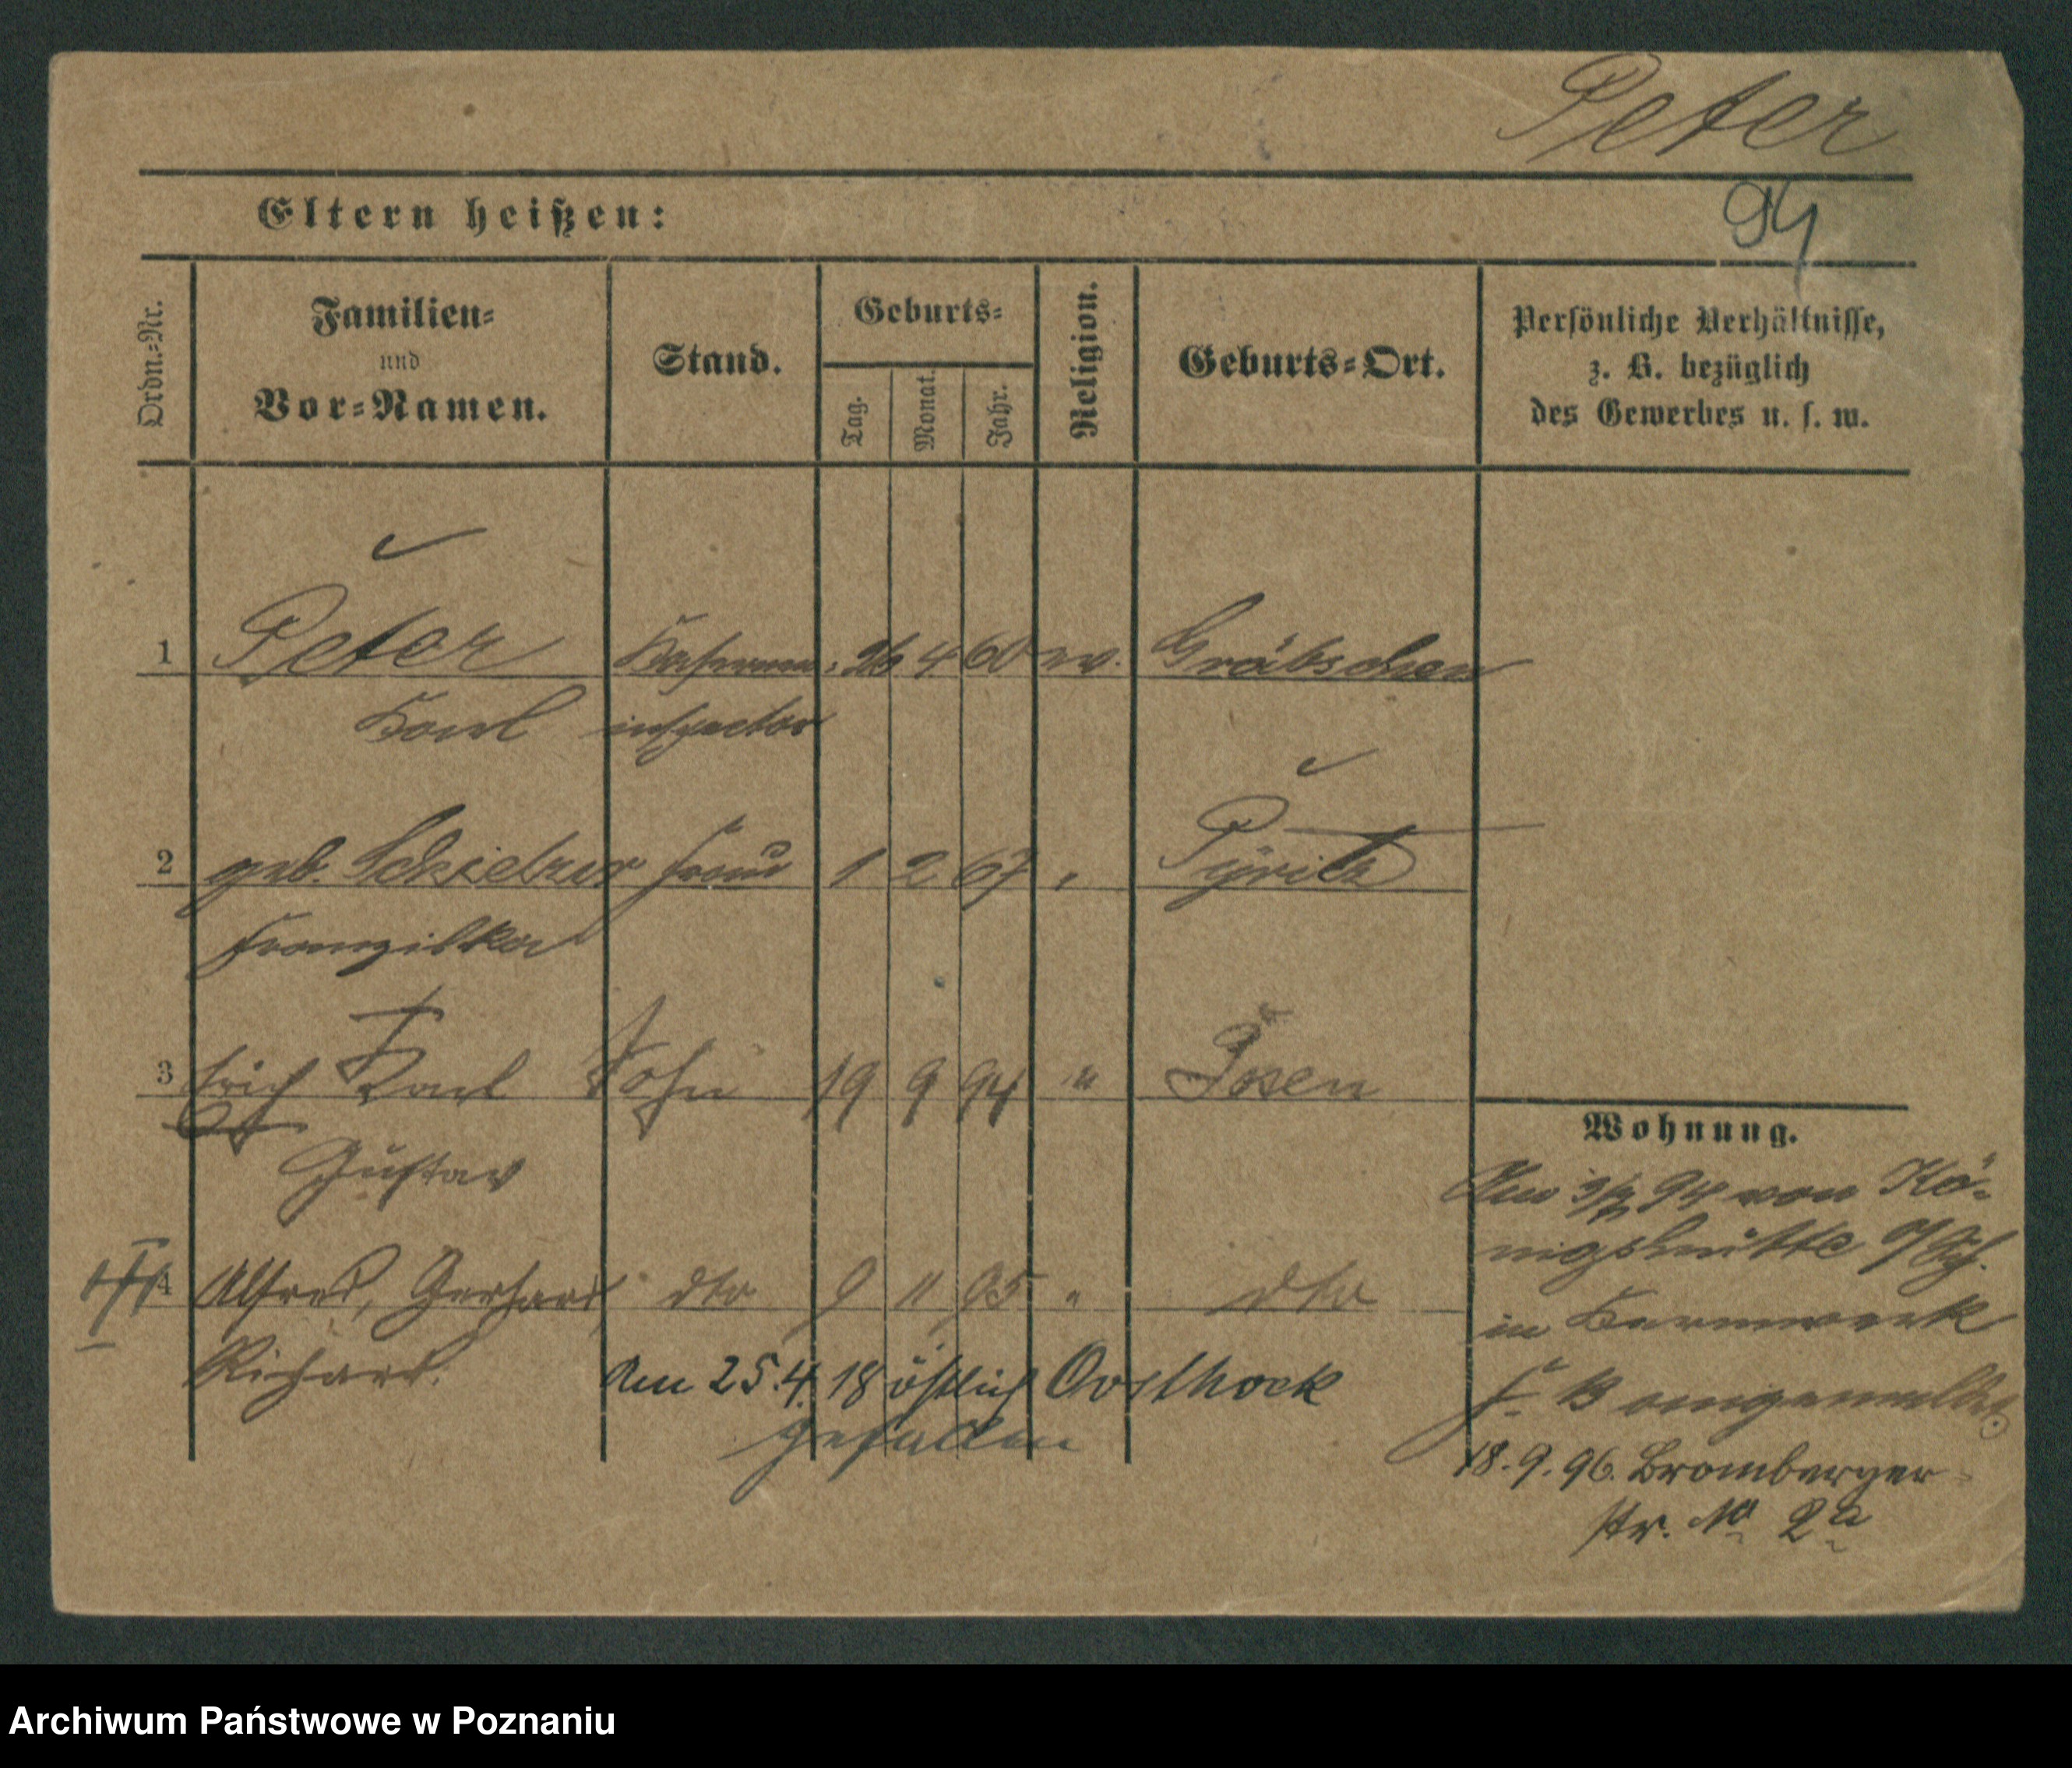 Peter
94
Eltern heißen:
Ordn.-Nr.
Familien-
und
Vor-Namen.
Stand.
Geburts-
Tag.
Monat.
Jahr.
Religion.
Geburts-Ort.
Persönliche Verhältnisse,
z. B. bezüglich
des Gewerbes u. s. w.
1 Peter Kasernen- 26 4 60 ev. Gräbschen
Karl inspector
2 geb. Frau 1 2 67 " Pyritz
Franziska
3 Erich Karl Sohn 19 9 94 " Posen
Gustav
4 Alfred, Gerhard, dto 9 11 95 " dto
Richard.
Am 25.4.18 östlich
gefallen
Wohnung.
94 von Kö-
nigshütte O/Sch.
in Kernwerk
angemeldet
18.9.96. Bromberger-
str. No 2a
Archiwum Państwowe w Poznaniu